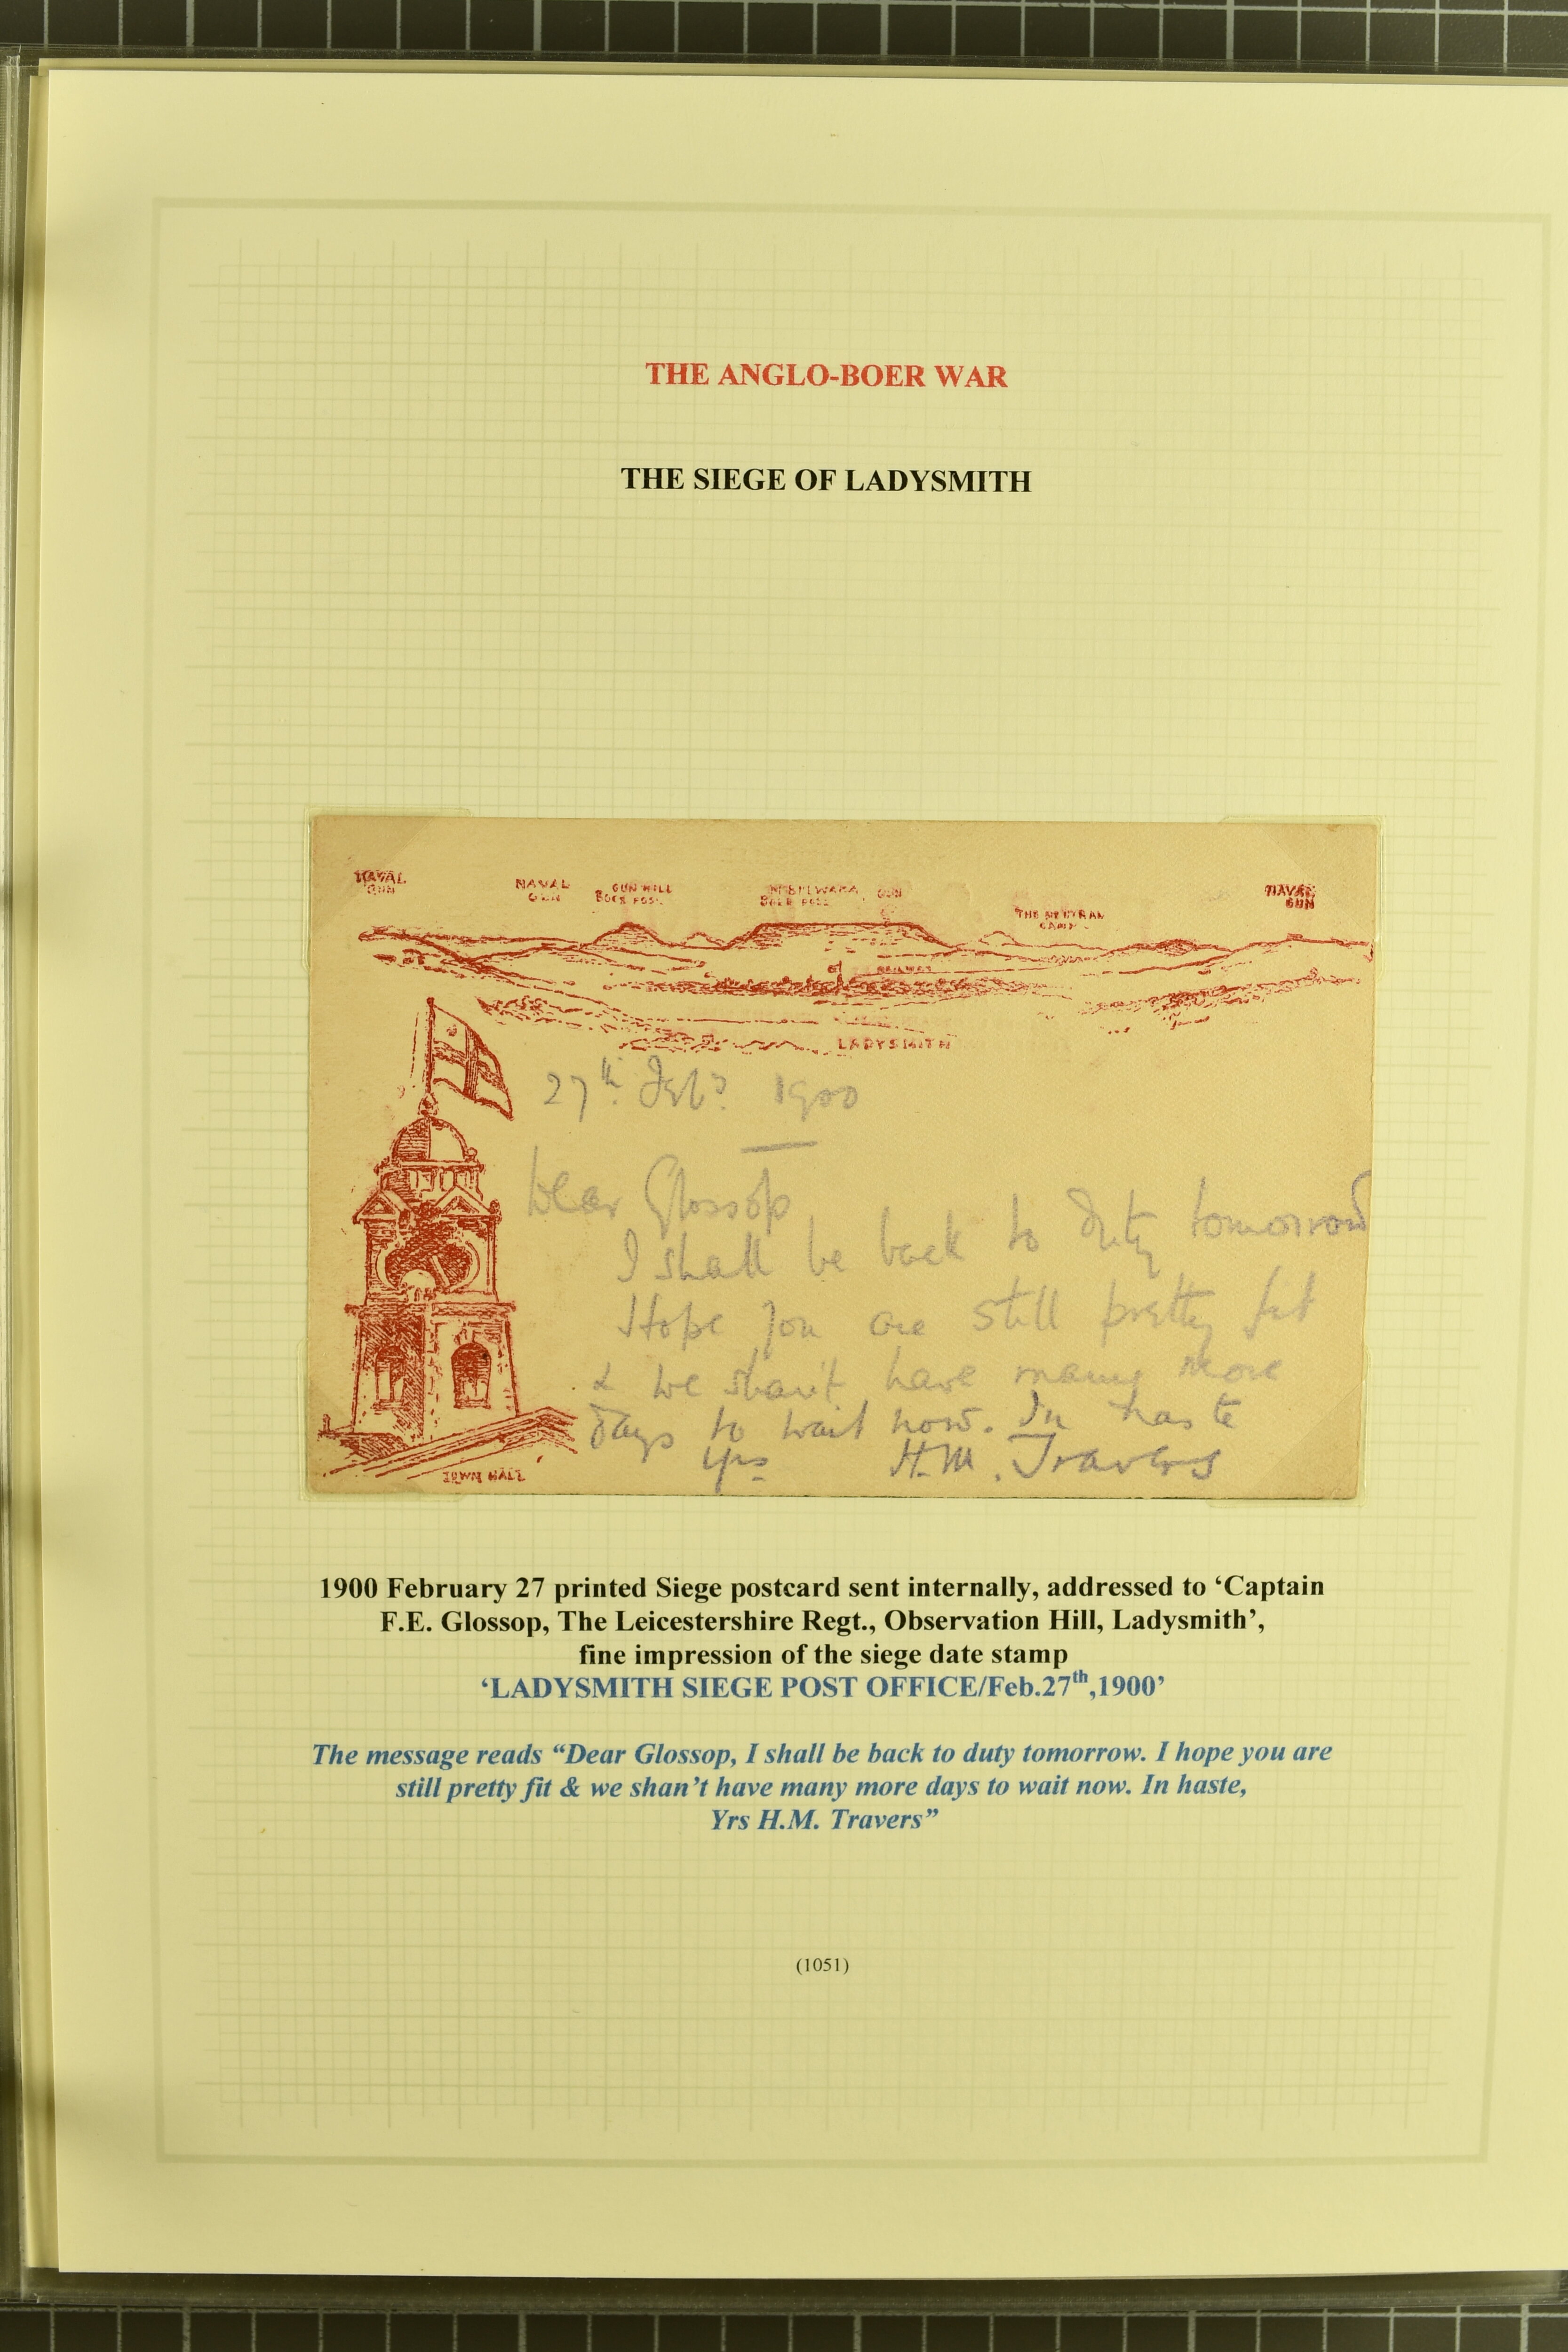 THE ANGLO-BOER WAR
THE SIEGE OF LADYSMITH
NAVAL GUN
NAVAL GUN
GUN HILL
BOER POSN.
GUN
THE NEUTRAL CAMP
NAVAL GUN
RAILWAY
LADYSMITH
27th Feby. 1900
Dear Glossop
I shall be back to duty tomorrow
Hope you are still pretty fit
& we shan't have many more
days to wait now. In haste
Yrs H.M. Travers
TOWN HALL
1900 February 27 printed Siege postcard sent internally, addressed to ‘Captain
F.E. Glossop, The Leicestershire Regt., Observation Hill, Ladysmith’,
fine impression of the siege date stamp
‘LADYSMITH SIEGE POST OFFICE/Feb.27th,1900’
The message reads “Dear Glossop, I shall be back to duty tomorrow. I hope you are
still pretty fit & we shan’t have many more days to wait now. In haste,
Yrs H.M. Travers”
(1051)